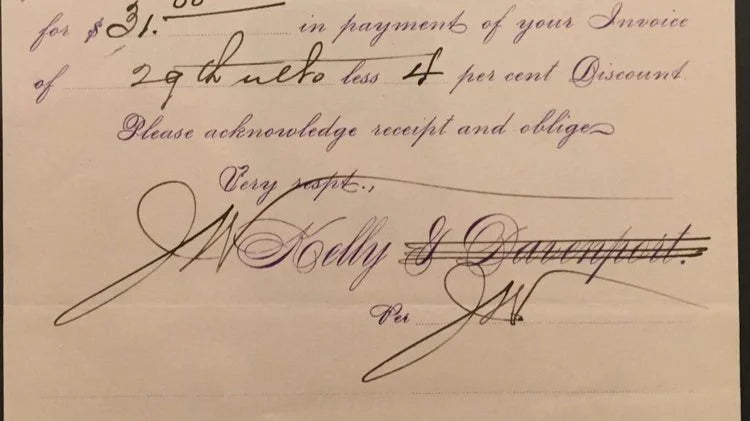 for $ 31.00 in payment of your Invoice
of 29th ulto less 4 per cent Discount.
Please acknowledge receipt and oblige
Very respt.,
JW Kelly & Davenport.
Per JW.